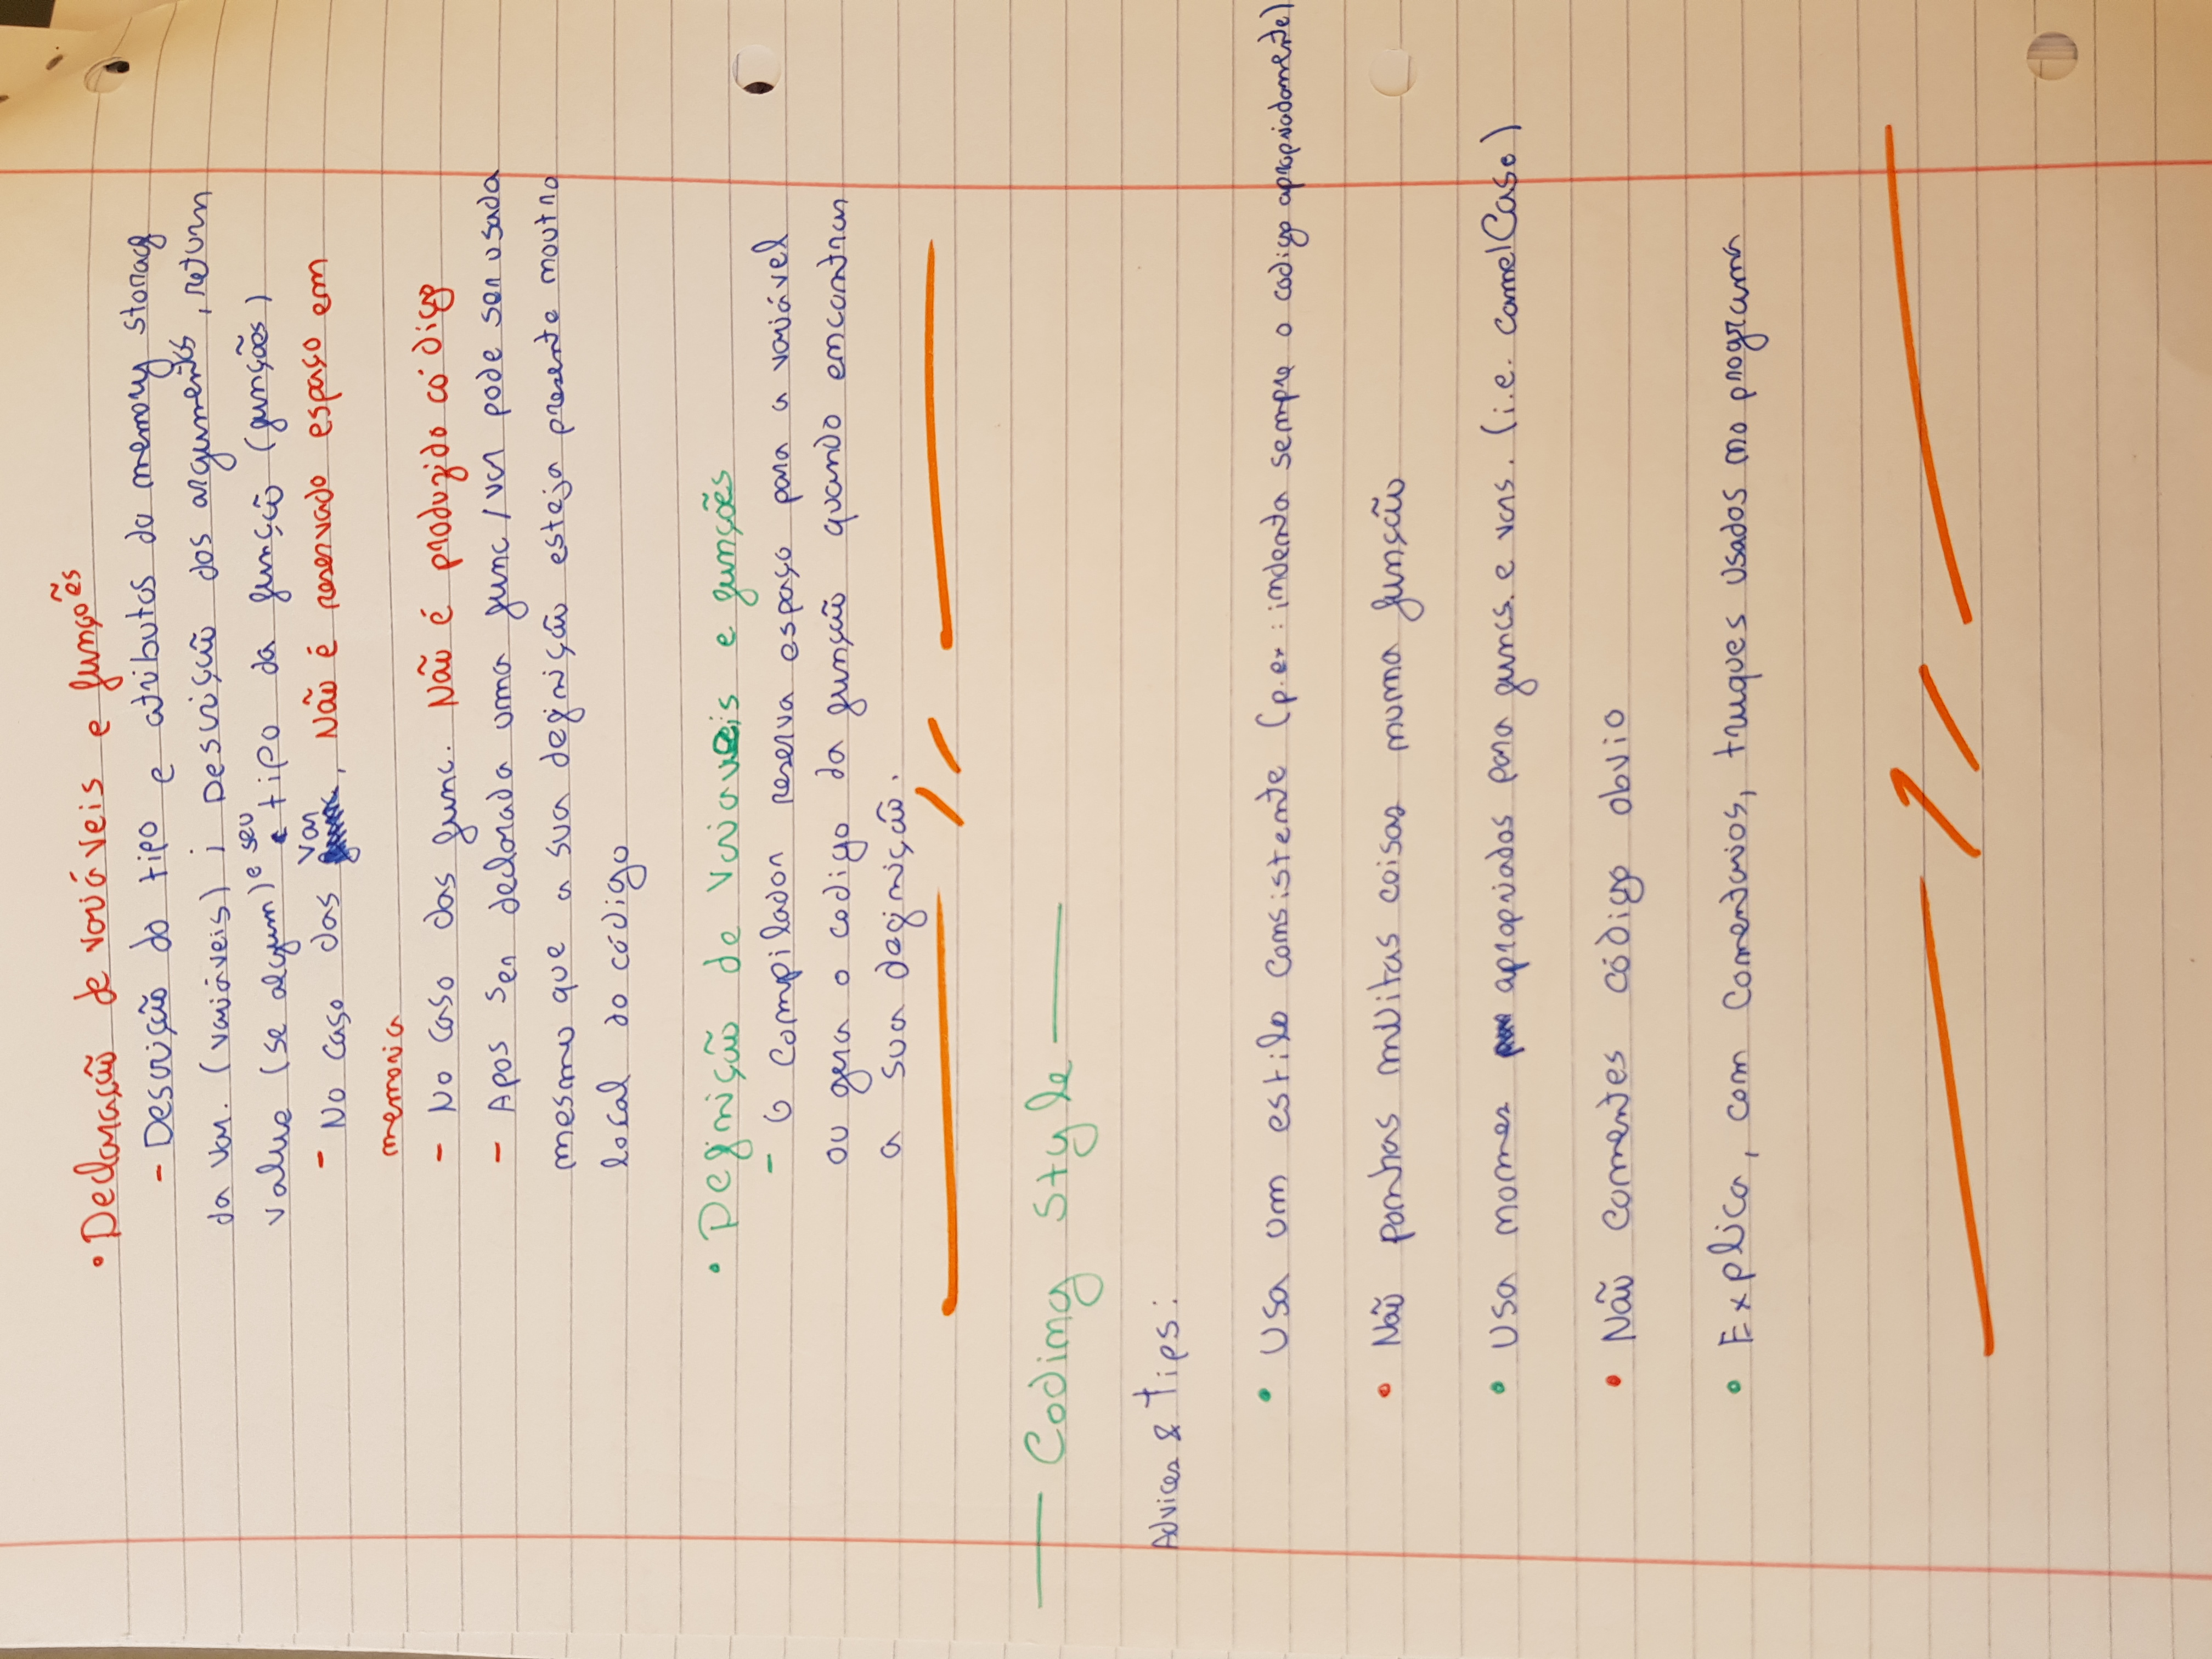 • Declaração de variáveis e funções
- Descrição do tipo e atributos da memory storage
da var. (variáveis) ; Descrição dos argumentos, return
value (se algum) e seu tipo da função (funções)
- No caso das var, Não é reservado espaço em
memoria
- No caso das func. Não é produzido código
- Apos ser declarada uma func/var pode ser usada
mesmo que a sua definição esteja presente noutro
local do código
• Definição de Variaveis e funções
- O Compilador reserva espaço para a variável
ou gera o codigo da função quando encontrar
a sua definição.
— Coding Style —
Advices & Tips:
• Usa um estilo Consistente (p.ex: indenta sempre o codigo apropriadamente)
• Não ponhas muitas coisas numa função
• Usa nomes apropriados para funcs. e vars. (i.e. camelCase)
• Não comentes código obvio
• Explica, com Comentarios, truques usados no programa